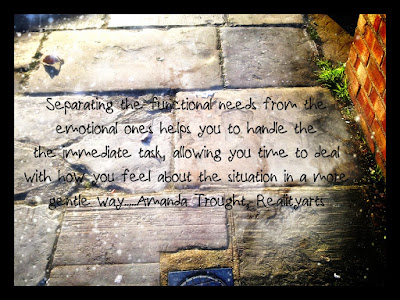 Separating the functional needs from the
emotional ones helps you to handle the
the immediate task, allowing you time to deal
with how you feel about the situation in a more
gentle way.....Amanda Trought, Realityarts